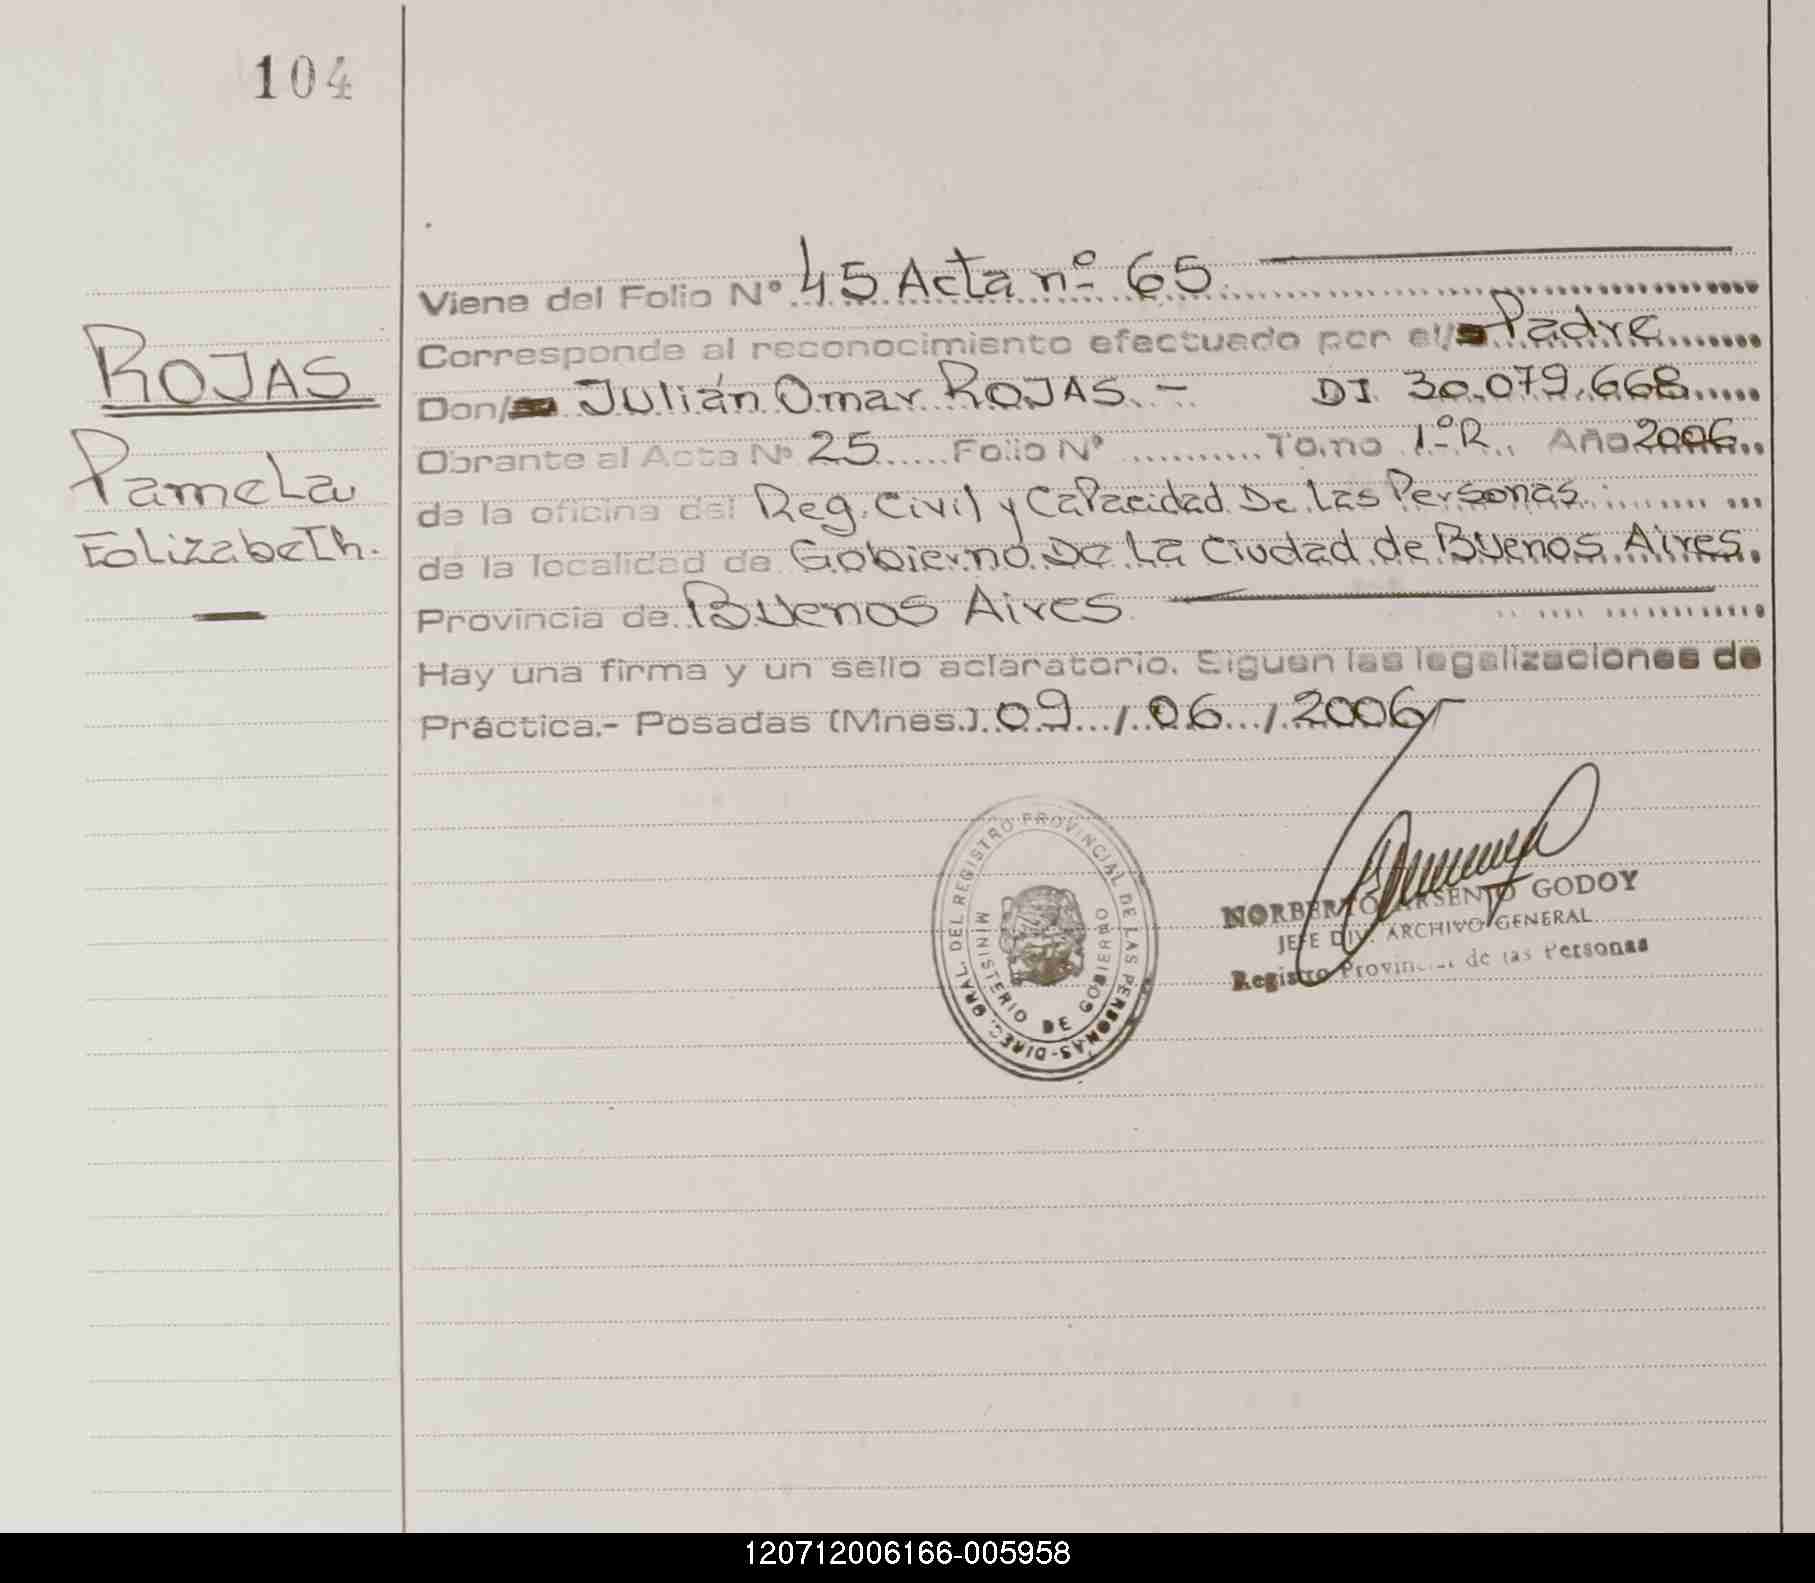 104
ROJAS
Pamela
Eolizabeth.
Viene del Folio Nº 45 Acta nº 65
Corresponde al reconocimiento efectuado por el/ Padre
Don/ Julián Omar ROJAS.- DI 30.079.668
Obrante al Acta Nº 25 Folio Nº Tomo 1ºR. Año 2006
de la oficina del Reg. Civil y Capacidad De Las Personas.
de la localidad de Gobierno De La Ciudad de Buenos Aires.
Provincia de Buenos Aires
Hay una firma y un sello aclaratorio. Siguen las legalizaciones de
Práctica.- Posadas (Mnes.) 09 / 06 / 2006
DIREC. GRAL. DEL REGISTRO PROVINCIAL DE LAS PERSONAS-
MINISTERIO DE GOBIERNO
NORBERTO ARSENIO GODOY
JEFE DIV. ARCHIVO GENERAL
Registro Provincial de las Personas
120712006166-005958